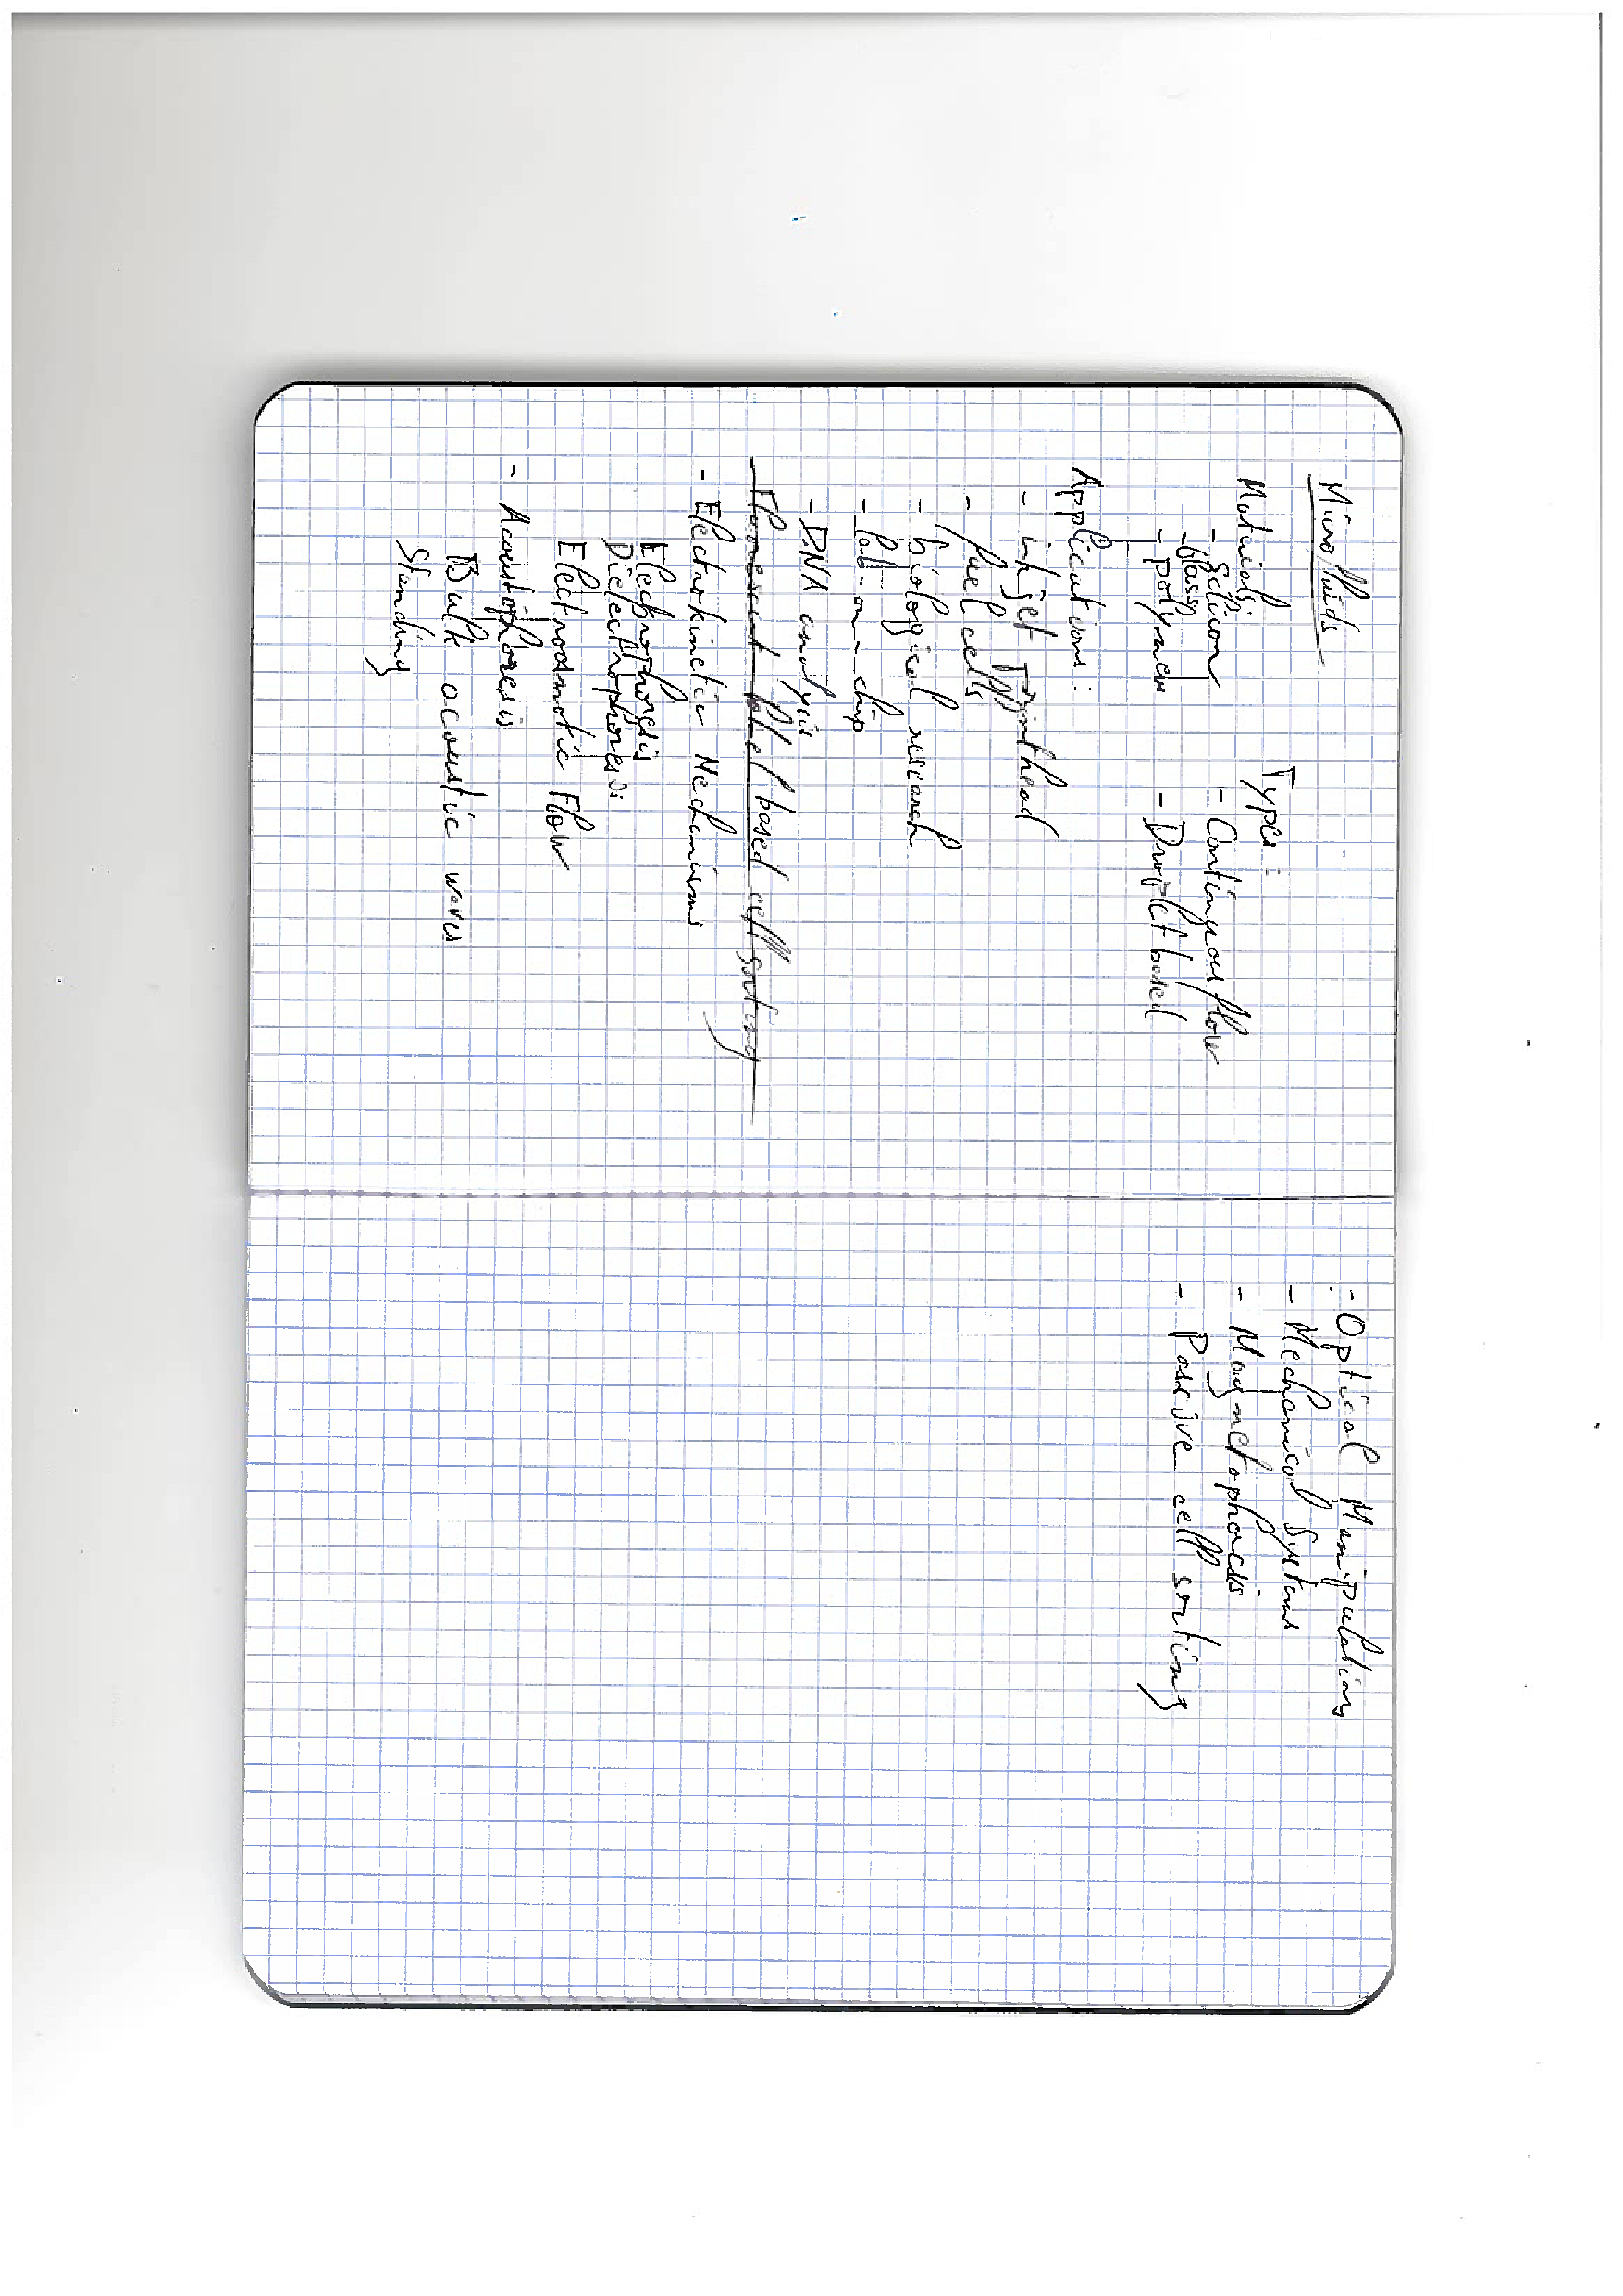 Microfluids
Materials:
- Silicon
- Glass
- polymers
Types:
- Continuous flow
- Droplet based
Applications:
- inkjet Printhead
- fuel cells
- biological research
- lab-on-a-chip
- DNA analysis
- Fluorescent label based cell sorting
- Electrokinetic Mechanisms
Electrophoresis
Dielectrophoresi
Electroosmotic Flow
- Acoustophoresis
Bulk acoustic waves
Standing
- Optical Manipulation
- Mechanical Systems
- Magnetophoresis
- Passive cell sorting